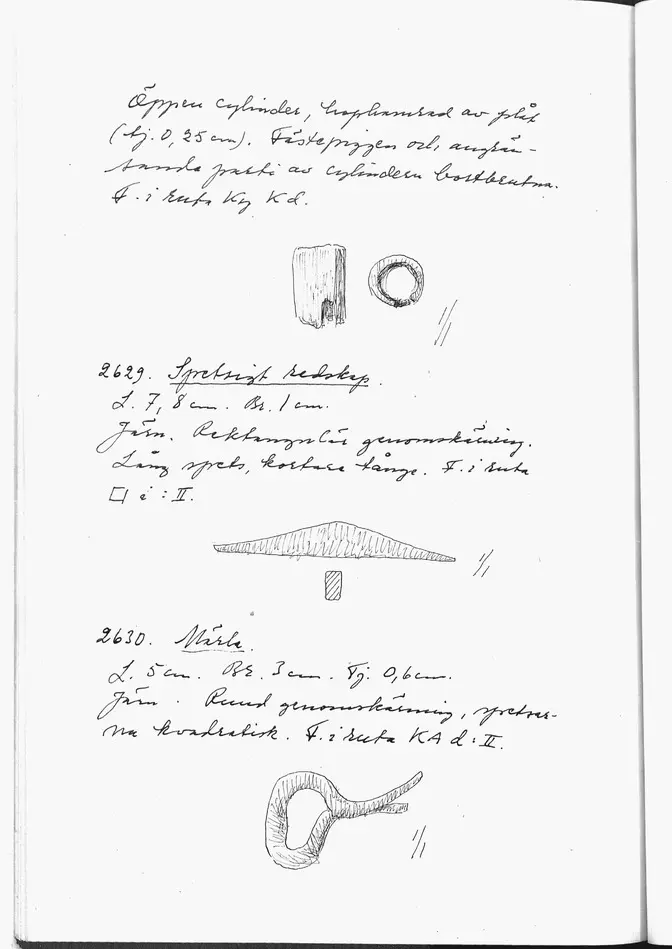 Öppen cylinder, hophamrad av plåt
(tj. 0,25 cm). Fästepiggen och angrän-
sande parti av cylindern bortbrutna.
F. i ruta Ky K d.
1/1
2629. Spetsigt redskap.
L. 7,8 cm. Br. 1 cm.
Järn. Rektangulär genomskärning.
Lång spets, kortare tånge. F. i ruta
i : II.
1/1
2630. Märla.
L. 5 cm. Br. 3 cm. Tj. 0,6 cm.
Järn. Rund genomskärning, spetsar-
na kvadratisk. F. i ruta KA d : II.
1/1